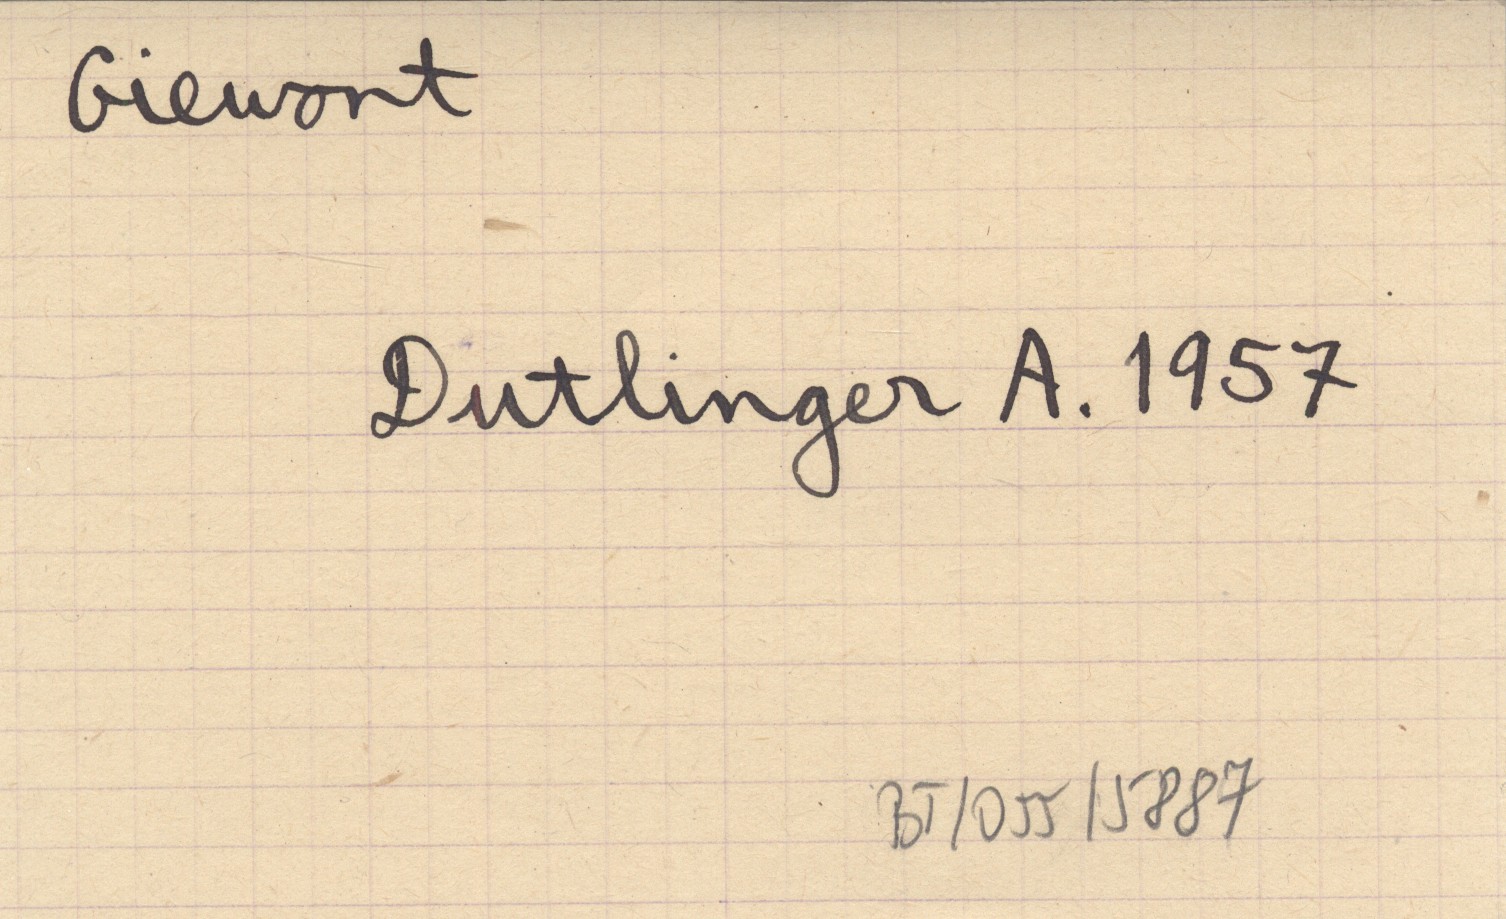 Giewont
Dutlinger A. 1957
BT/055/5887